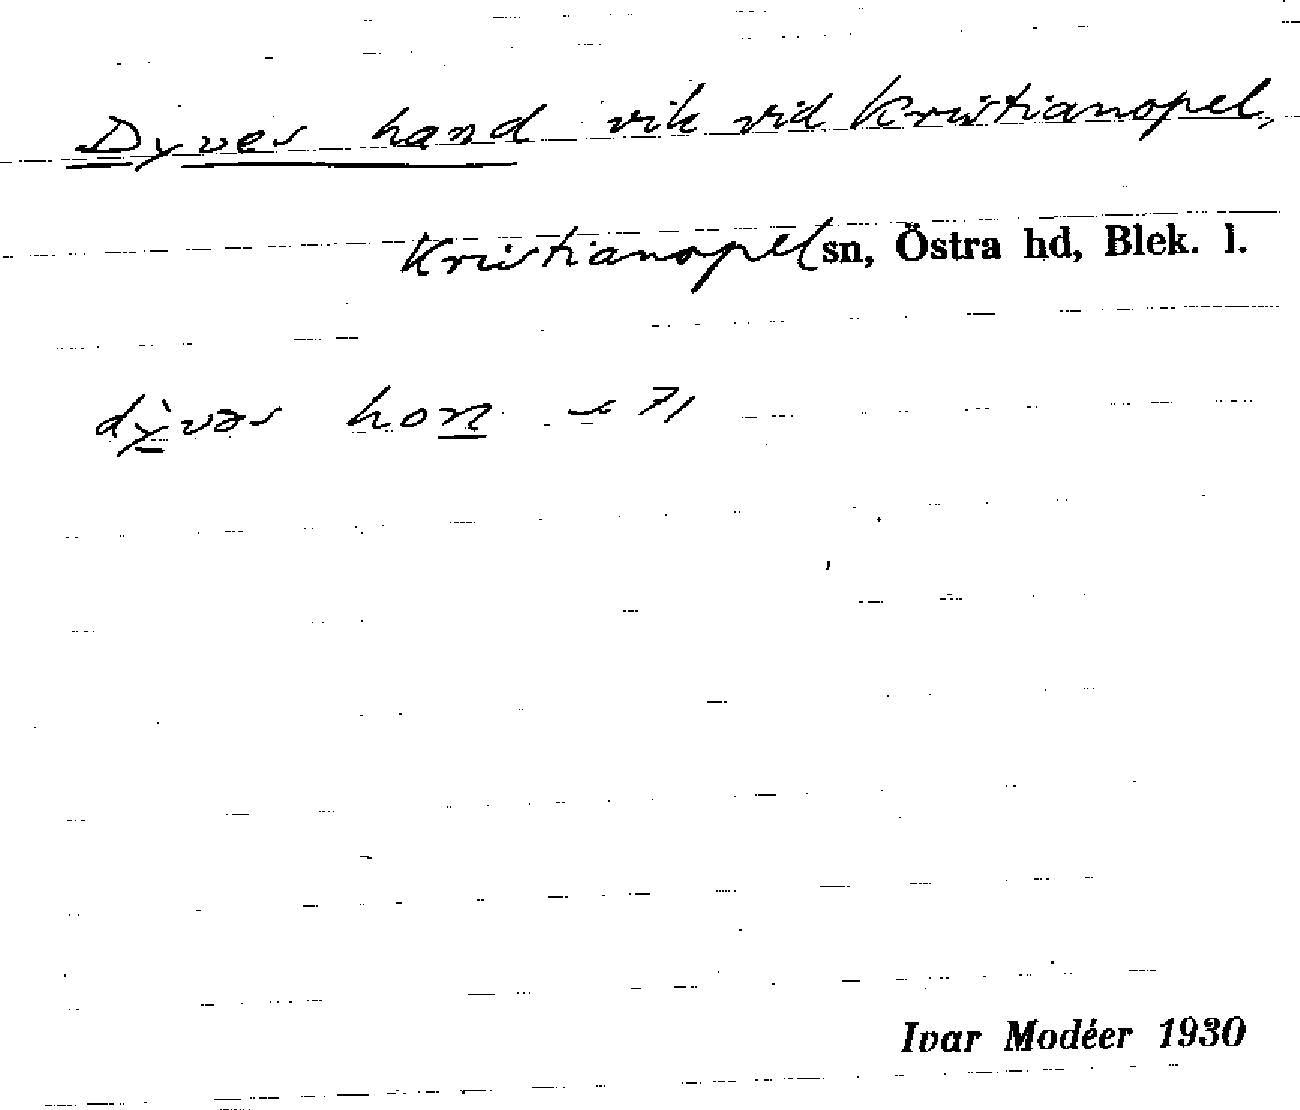 Dyves hand vik vid Kristianopel,
Kristianopel sn, Östra hd, Blek. l.
dỳvəs hon
Ivar Modéer 1930